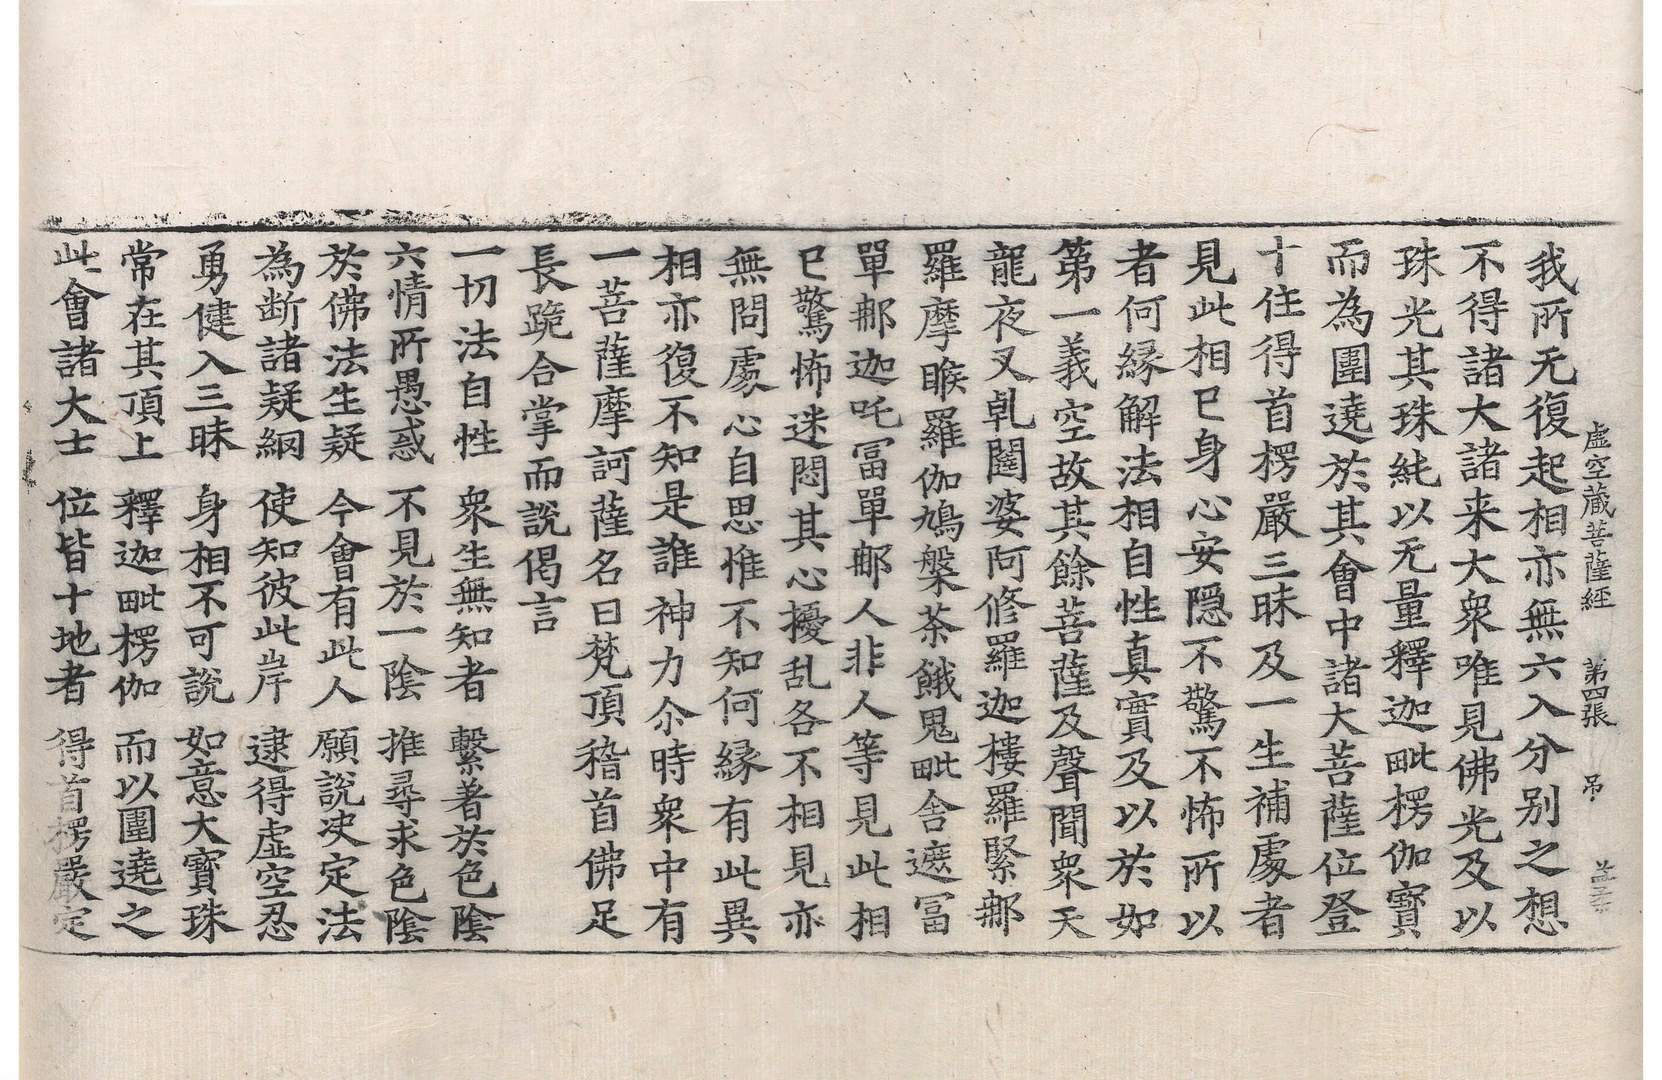 虛空藏菩薩經 第四張 吊
我所无復起相亦無六入分別之想
不得諸大諸来大衆唯見佛光及以
珠光其珠純以无量釋迦毗楞伽寶
而為圍遶於其會中諸大菩薩位登
十住得首楞嚴三昧及一生補處者
見此相已身心安隱不驚不怖所以
者何緣解法相自性真實及以於如
第一義空故其餘菩薩及聲聞衆天
龍夜叉乹闥婆阿修羅迦樓羅緊那
羅摩睺羅伽鳩槃茶餓鬼毗舍遮冨
單那迦吒冨單那人非人等見此相
已驚怖迷悶其心擾乱各不相見亦
無問處心自思惟不知何緣有此異
相亦復不知是誰神力尒時衆中有
一菩薩摩訶薩名曰梵頂稽首佛足
長跪合掌而說偈言
一切法自性 衆生無知者 繫著於色陰
六情所愚惑 不見於一陰 推尋求色陰
於佛法生疑 今會有此人 願說决定法
為断諸疑網 使知彼此岸 逮得虛空忍
勇健入三昧 身相不可說 如意大寶珠
常在其頂上 釋迦毗楞伽 而以圍遶之
此會諸大士 位皆十地者 得首楞嚴定